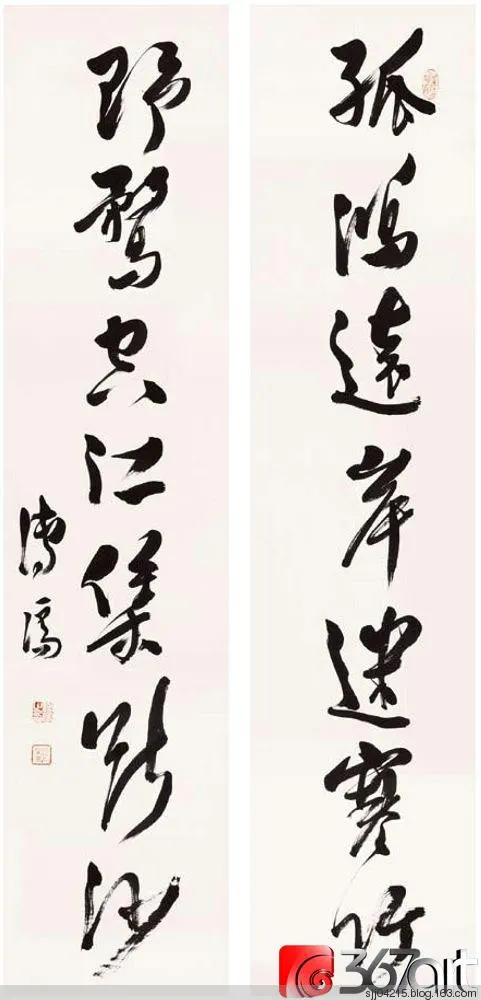 孤鴻遠岸迷寒
野鶩空江集斷沙
溥儒
367art
sjj04215.blog.163.com